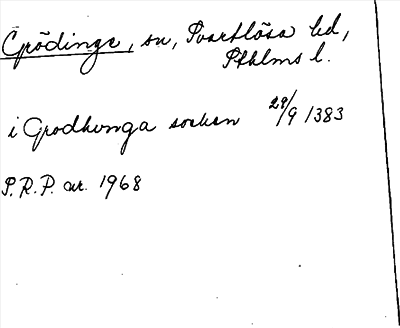 Grödinge, sn, Svartlösa hd,
Sthlms l.
i Grodhunga socken 29/9 1383
S.R.P. nr. 1968